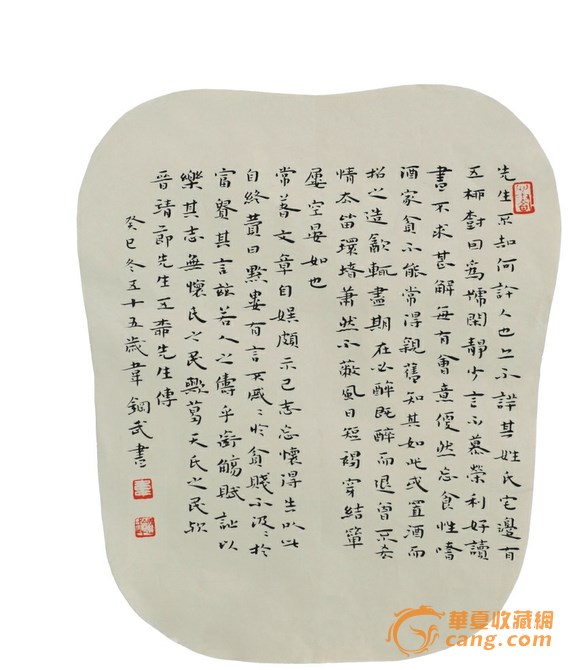 先生不知何許人也亦不詳其姓氏宅邊有
五柳樹因為號閑靜少言不慕榮利好讀
書不求甚解每有會意便然忘食性嗜
酒家貧不能常得親舊知其如此或置酒而
招之造飲輒盡期在必醉既醉而退曾不吝
情去留環堵蕭然不蔽風日短褐穿結簞
屢空晏如也
常著文章自娛頗示己志忘懷得失以此
自終贊曰黔婁有言不戚〻於貧賤不汲〻於
富貴其言茲若人之儔乎銜觴賦詩以
樂其志無懷氏之民歟葛天氏之民歟
晉靖節先生五柳先生傳
癸巳冬五十五歲韋鋼武書
華夏收藏網
cang.com